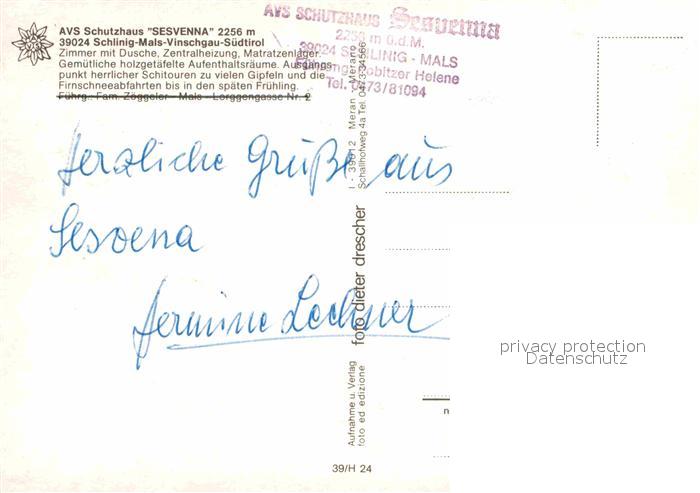 AVS Schutzhaus "SESVENNA" 2256 m
39024 Schlinig-Mals-Vinschgau-Südtirol
Zimmer mit Dusche, Zentralheizung, Matratzenlager.
Gemütliche holzgetäfelte Aufenthaltsräume. Ausgangs-
punkt herrlicher Schitouren zu vielen Gipfeln und die
Firnschneeabfahrten bis in den späten Frühling.
Führg.: Fam. Zöggeler - Mals - Lorggengasse Nr. 2
AVS SCHUTZHAUS Sesvenna
2256 m ü.d.M.
39024 SCHLINIG - MALS
Pobitzer Helene
Tel. 0473/81094
Herzliche Grüße aus
Sesvena
Hermine Lechner
I - 39012 Meran - Merano
Schallhofweg 4a Tel. 0473-34566
foto dieter drescher
Aufnahme u. Verlag
foto ed edizione
39/H 24
n
privacy protection
Datenschutz